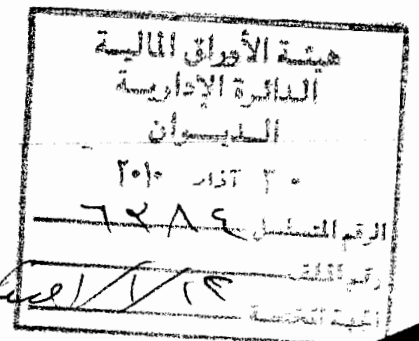 هيئة الأوراق المالية
الدائرة الإدارية
الديوان
٣٠ آذار ٢٠١٠
الرقم المتسلسل ٦٢٨٤
رقم الملف
الجهة المختصة ١٣/١/